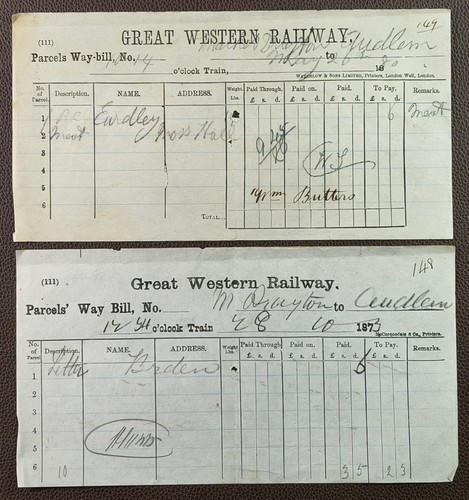 149
GREAT WESTERN RAILWAY.
(111)
Market Drayton to Audlem
Parcels Way-bill, No. 14
May 26 18
o'clock Train,
WATERLOW & SONS LIMITED, Printers, London Wall, London.
No. of Parcel Description. NAME. ADDRESS. Weight Lbs. Paid Through. Paid on. Paid. To Pay. Remarks.
£ s. d. £ s. d. £ s. d. £ s. d.
1 Eardley 6 Meat
2 Meat Moss Hall
3
4
5 Butters
6
TOTAL
148
(111)
Great Western Railway.
M Drayton to Audlem
Parcels' Way Bill, No.
12 34 o'clock Train 28 10 1873
McCorquodale & Co., Printers.
No. of Parcel Description. NAME. ADDRESS. Weight Lbs. Paid Through. Paid on. Paid. To Pay. Remarks.
£ s. d. £ s. d. £ s. d. £ s. d.
1 Letter 6
2
3
4
5
6 10 3 5 2 3